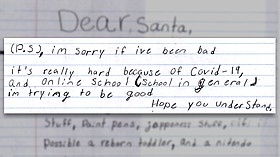 Dear, Santa,
(P.S), im sorry if ive been bad
it's really hard because of Covid-19,
and online school (School in general)
im trying to be good
Hope you understand,
Stuff, Paint pens, japponese stuff,
Possible a reborn toddler, and a nintendo